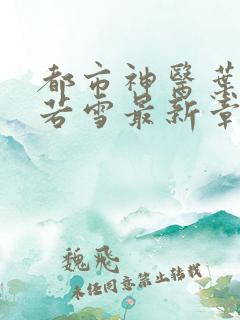 都市神醫葉
若雪最新章
魏飛
未经同意禁止转载